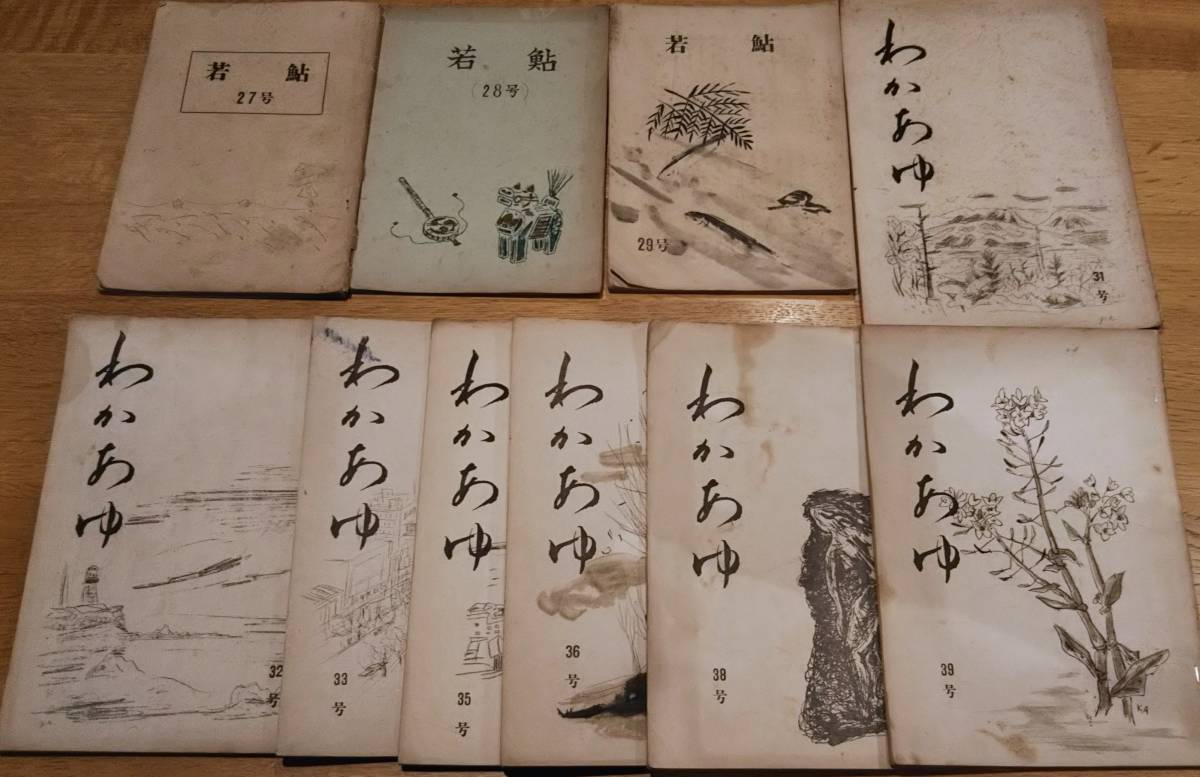 若鮎
27号
若鮎
(28号)
若鮎
29号
わかあゆ
31号
わかあゆ
32号
わかあゆ
33号
わかあゆ
35号
わかあゆ
36号
わかあゆ
38号
わかあゆ
39号
KA